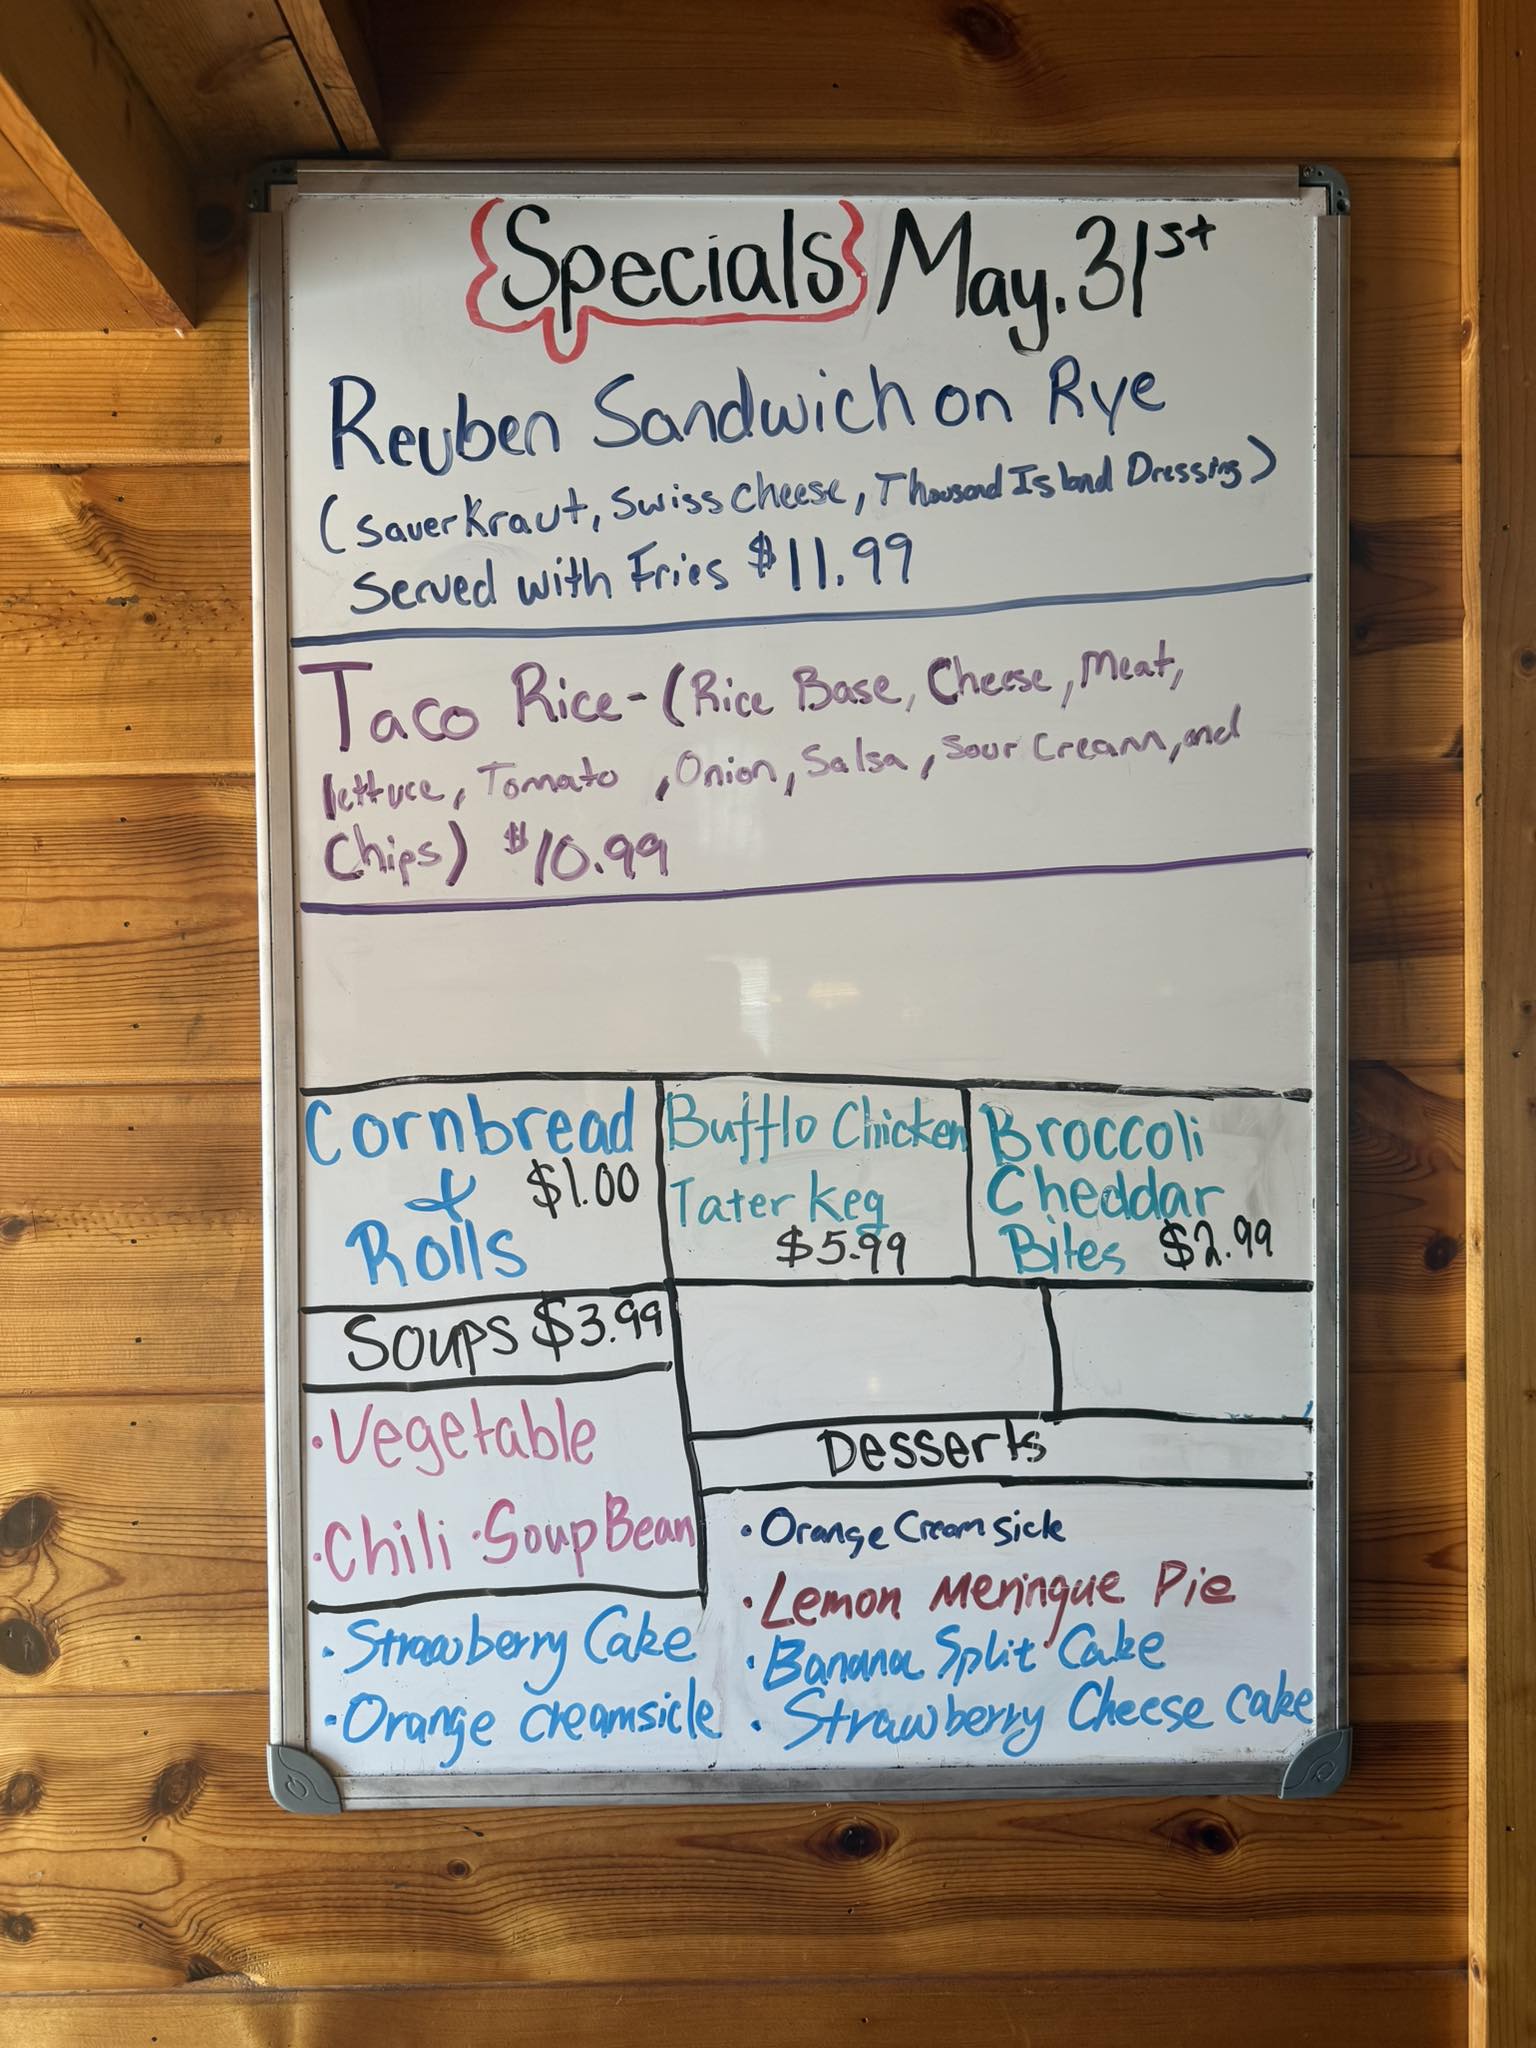 Specials May. 31st
Reuben Sandwich on Rye
(Sauerkraut, Swiss Cheese, Thousand Island Dressing)
Served with Fries $11.99
Taco Rice - (Rice Base, Cheese, Meat,
lettuce, Tomato , Onion, Salsa, Sour Cream, and
Chips) $10.99
Cornbread
& $1.00
Rolls
Bufflo Chicken
Tater Keg
$5.99
Broccoli
Cheddar
Bites $2.99
Soups $3.99
• Vegetable
• Chili • Soup Bean
Desserts
• Orange Creamsicle
• Lemon Meringue Pie
• Banana Split Cake
• Strawberry Cheese cake
• Strawberry Cake
• Orange creamsicle